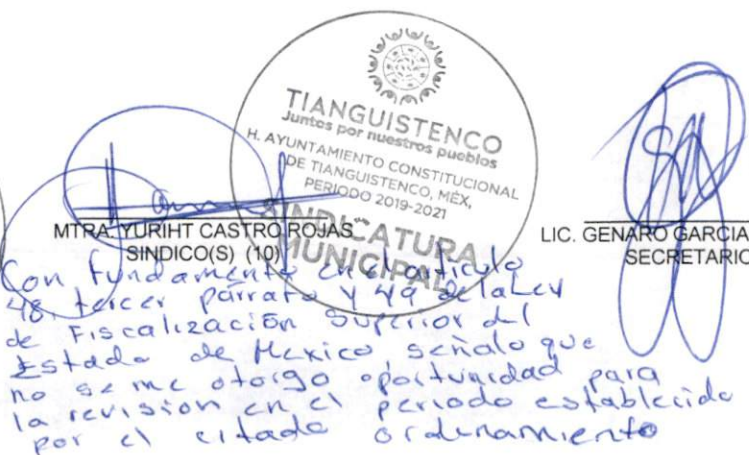 TIANGUISTENCO
Juntos por nuestros pueblos
H. AYUNTAMIENTO CONSTITUCIONAL
DE TIANGUISTENCO, MÉX,
PERIODO 2019-2021
SINDICATURA
MUNICIPAL
MTRA. YURIHT CASTRO ROJAS
SINDICO(S) (10)
LIC. GENARO GARCIA
SECRETARIO
Con fundamento en el artículo
48, tercer párrafo y 49 de la Ley
de Fiscalización Superior del
Estado de Mexico, señalo que
no se me otorgo oportunidad para
la revision en el periodo establecido
por el citado ordenamiento